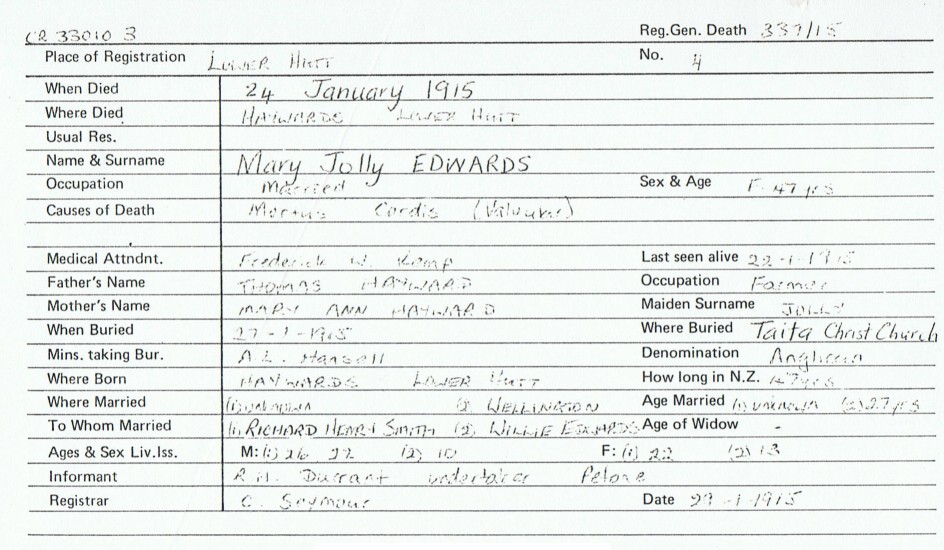 CR 33010 3 Reg.Gen. Death 339/15
Place of Registration LOWER HUTT No. 4
When Died 24 January 1915
Where Died HAYWARDS LOWER HUTT
Usual Res.
Name & Surname Mary Jolly EDWARDS
Occupation Married Sex & Age F. 47 yrs
Causes of Death Morbus Cordis (Valvular)
Medical Attndnt. Frederick W. Kemp Last seen alive 22-1-1915
Father's Name THOMAS HAYWARD Occupation Farmer
Mother's Name MARY ANN HAYWARD Maiden Surname JOLLY
When Buried 27-1-1915 Where Buried Taita Christ Church
Mins. taking Bur. A.L. Hansell Denomination Anglican
Where Born HAYWARDS LOWER HUTT How long in N.Z. 47 yrs
Where Married (1) UNKNOWN (2) WELLINGTON Age Married (1) UNKNOWN (2) 27 yrs
To Whom Married (1) RICHARD HENRY SMITH (2) WILLIE EDWARDS Age of Widow -
Ages & Sex Liv.Iss. M: (1) 26 22 (2) 10 F: (1) 22 (2) 13
Informant R.H. Durrant undertaker Petone
Registrar C. Seymour Date 29-1-1915